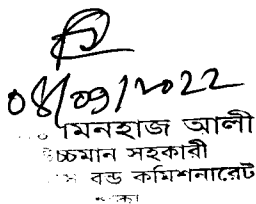 08/09/2022
মিনহাজ আলী
উচ্চমান সহকারী
বন্ড কমিশনারেট